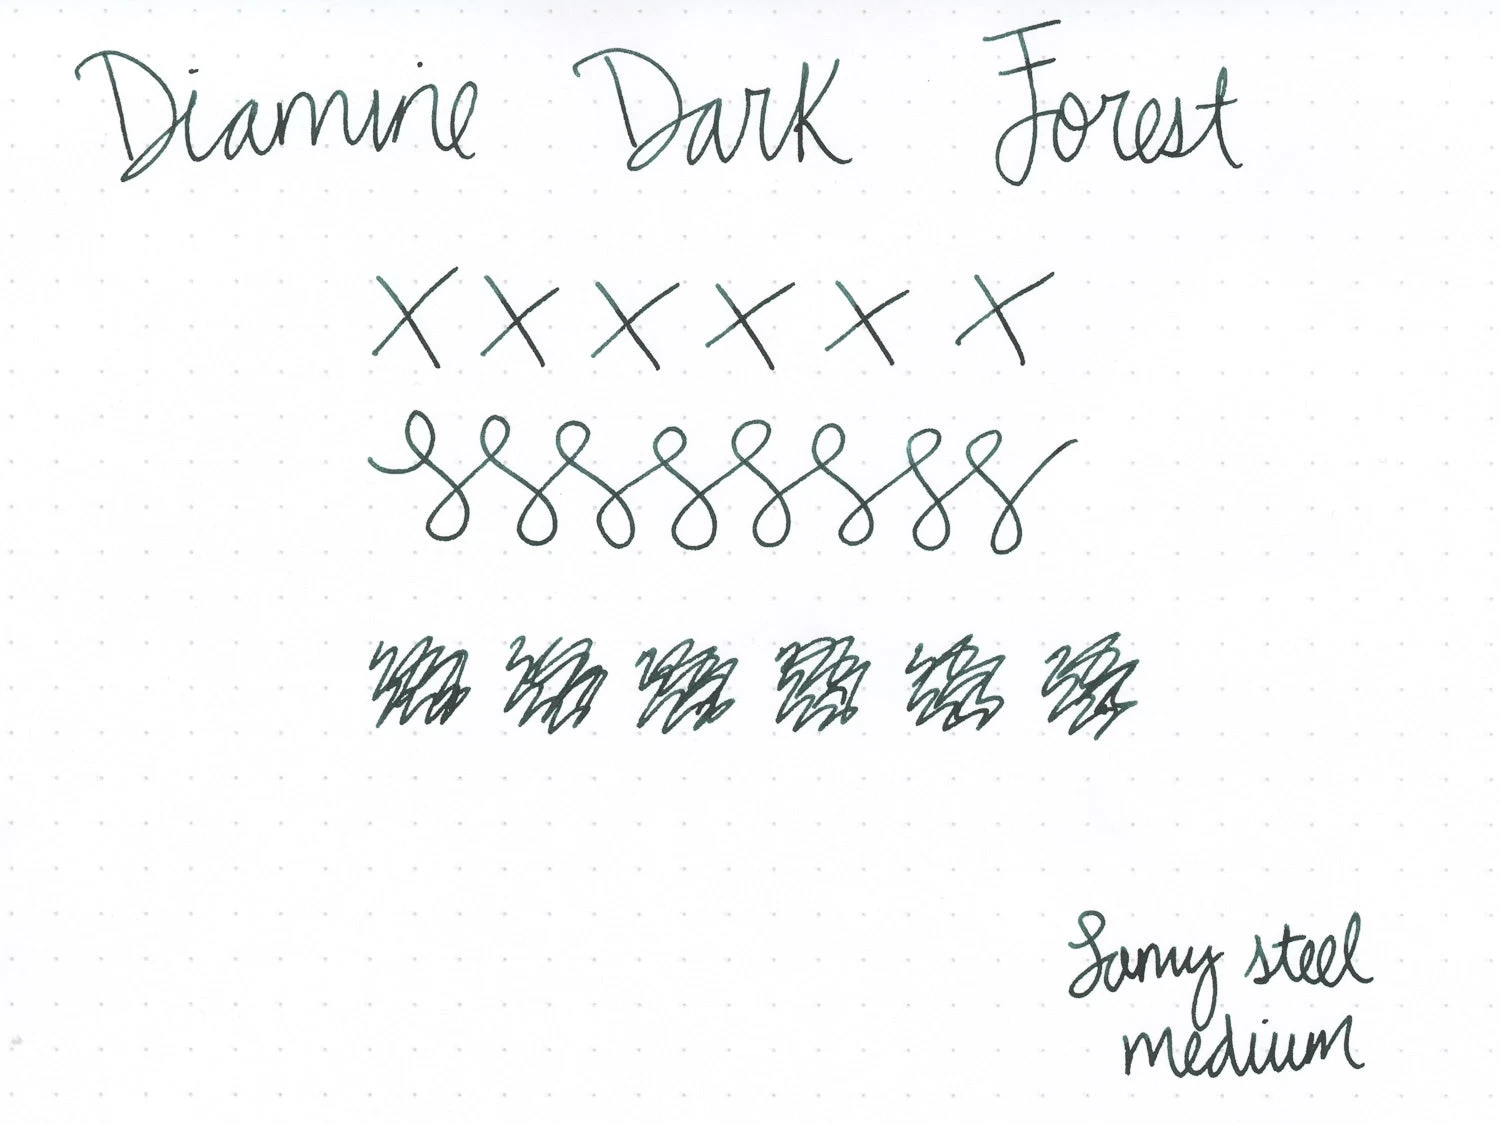 Diamine Dark Forest
x x x x x x
Lamy steel
medium